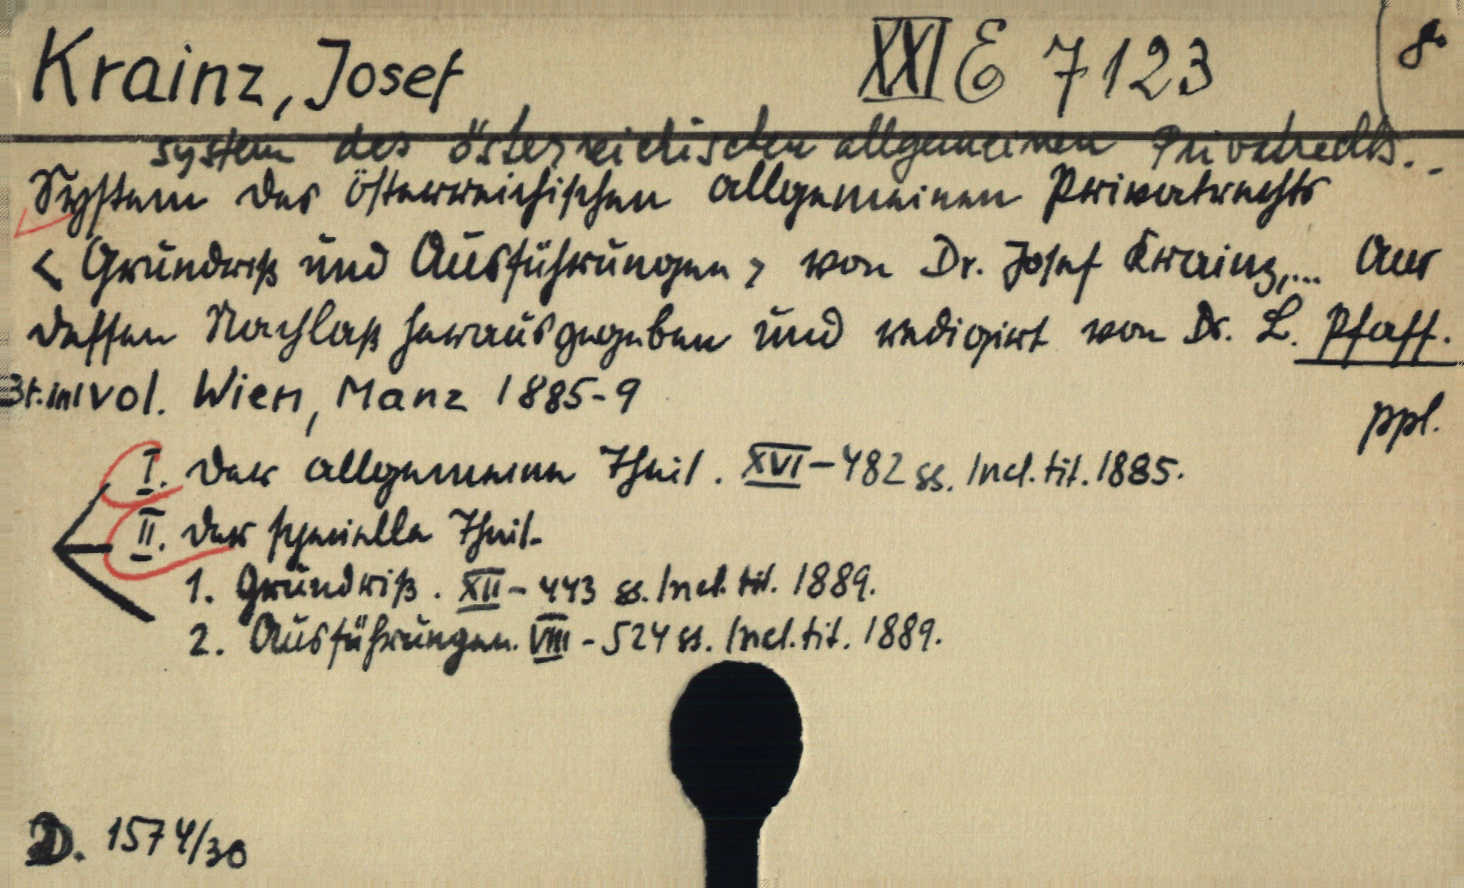 Krainz, Josef XXI E 7123 8°
system des österreichischen allgemeinen Privatrechts...
System des österreichischen allgemeinen Privatrechts
< Grundriß und Ausführungen > von Dr. Josef Krainz,... Aus
dessen Nachlaß herausgegeben und redigirt von Dr. L. Pfaff.
3t. in 1 vol. Wien, Manz 1885-9
ppl.
I. Der allgemeine Theil. XVI-482 ss. Incl. tit. 1885.
II. Der specielle Theil.
1. Grundriß. XII-443 ss. Incl. tit. 1889.
2. Ausführungen. VIII-524 ss. Incl. tit. 1889.
D. 1574/30